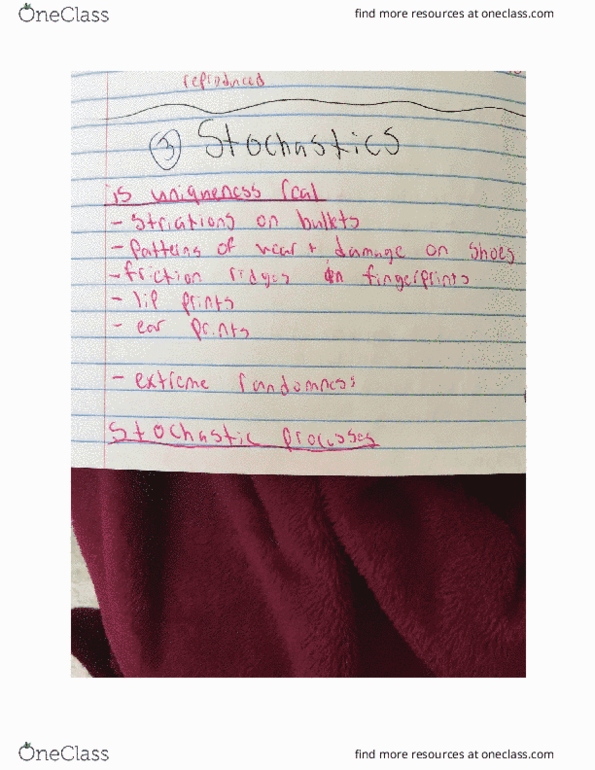 OneClass
find more resources at oneclass.com
reproduced
③ Stochastics
is uniqueness real
- Striations on bullets
- patterns of wear + damage on shoes
- friction ridges on fingerprints
- lip prints
- ear prints
- extreme randomness
Stochastic processes
OneClass
find more resources at oneclass.com